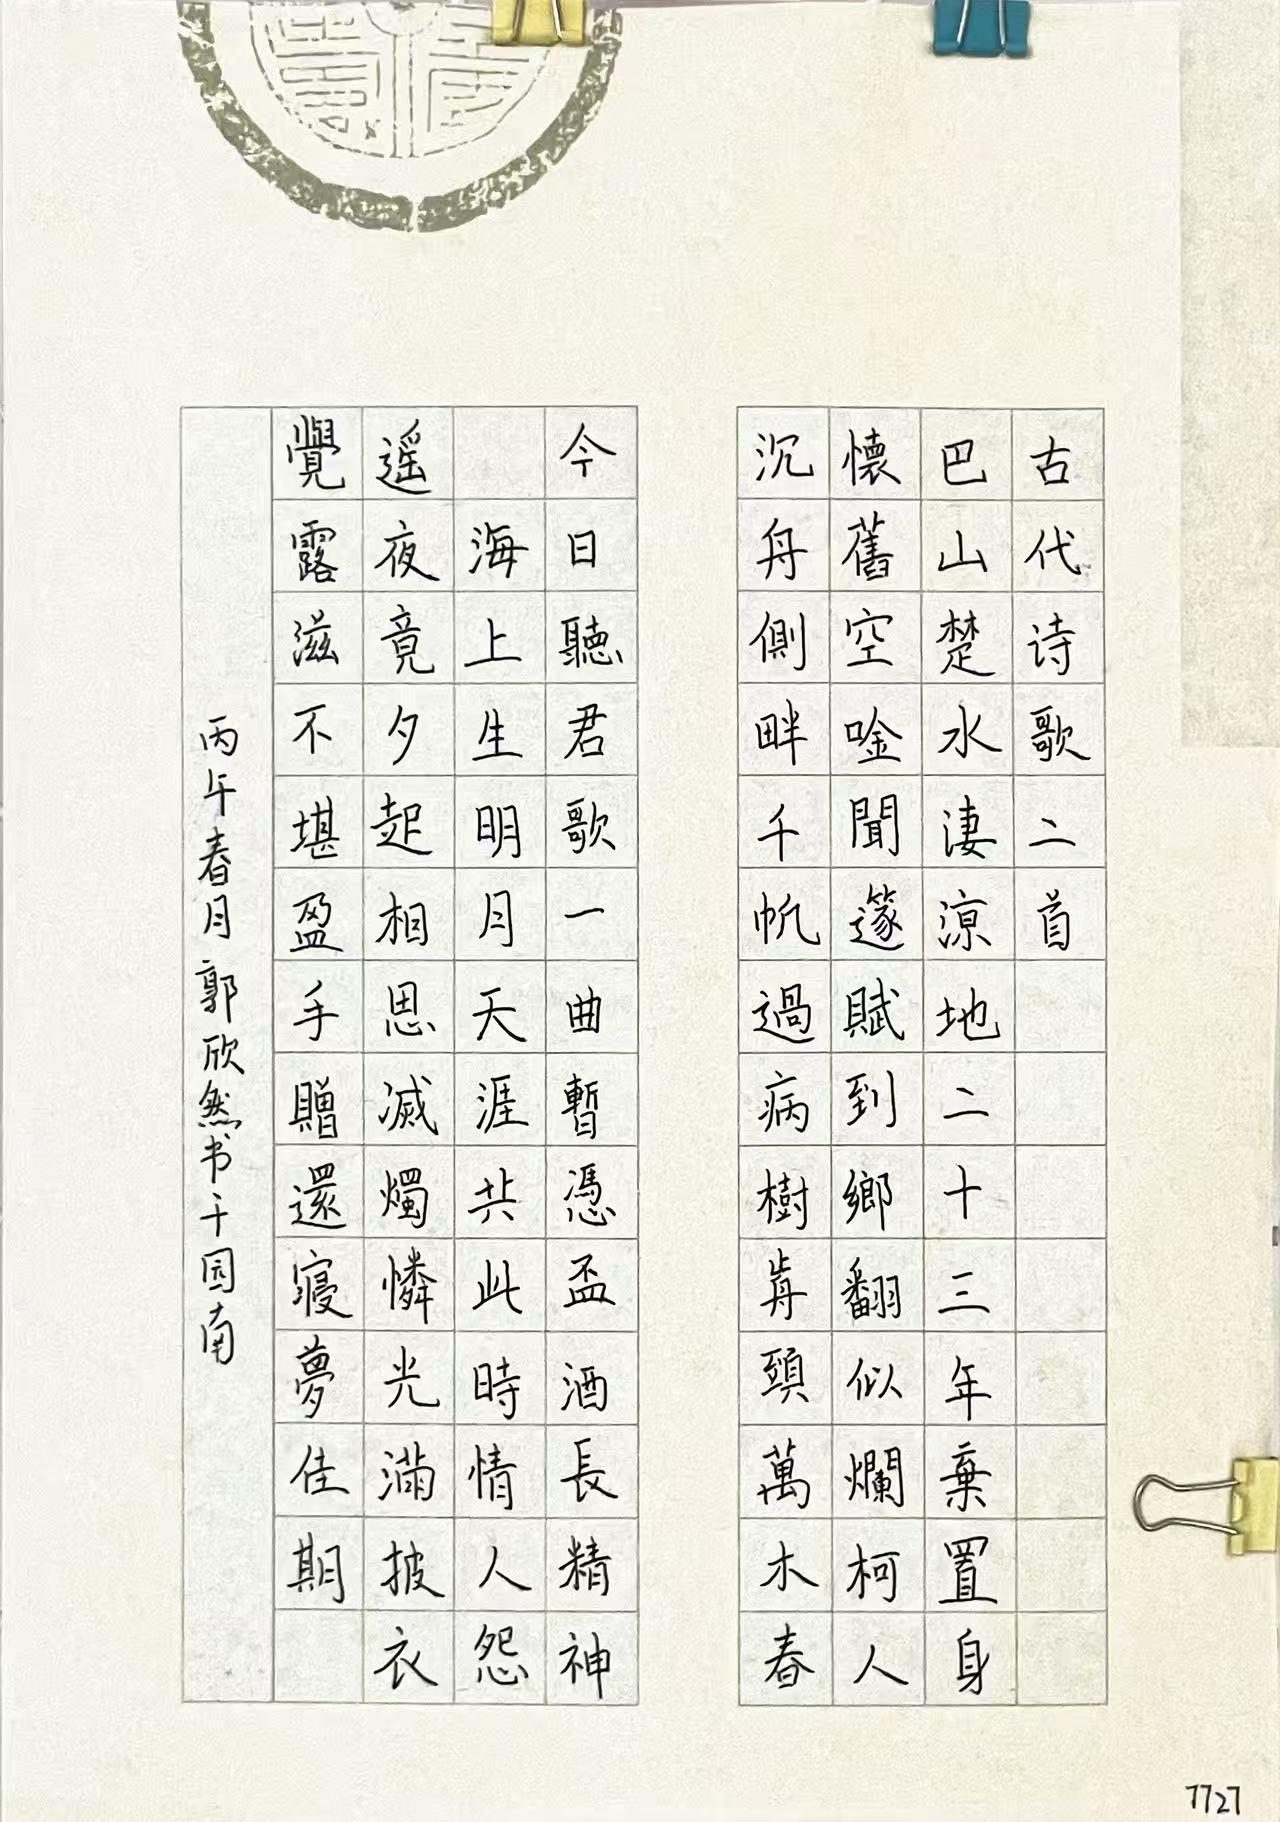 古代诗歌二首
巴山楚水淒涼地二十三年棄置身
懷舊空唫聞篴賦到鄉翻似爛柯人
沉舟側畔千帆過病樹歬頭萬木春
今日聽君歌一曲暫憑盃酒長精神
海上生明月天涯共此時情人怨
遥夜竟夕起相思滅燭憐光滿披衣
覺露滋不堪盈手贈還寢夢佳期
丙午春月郭欣然书于园南
7727